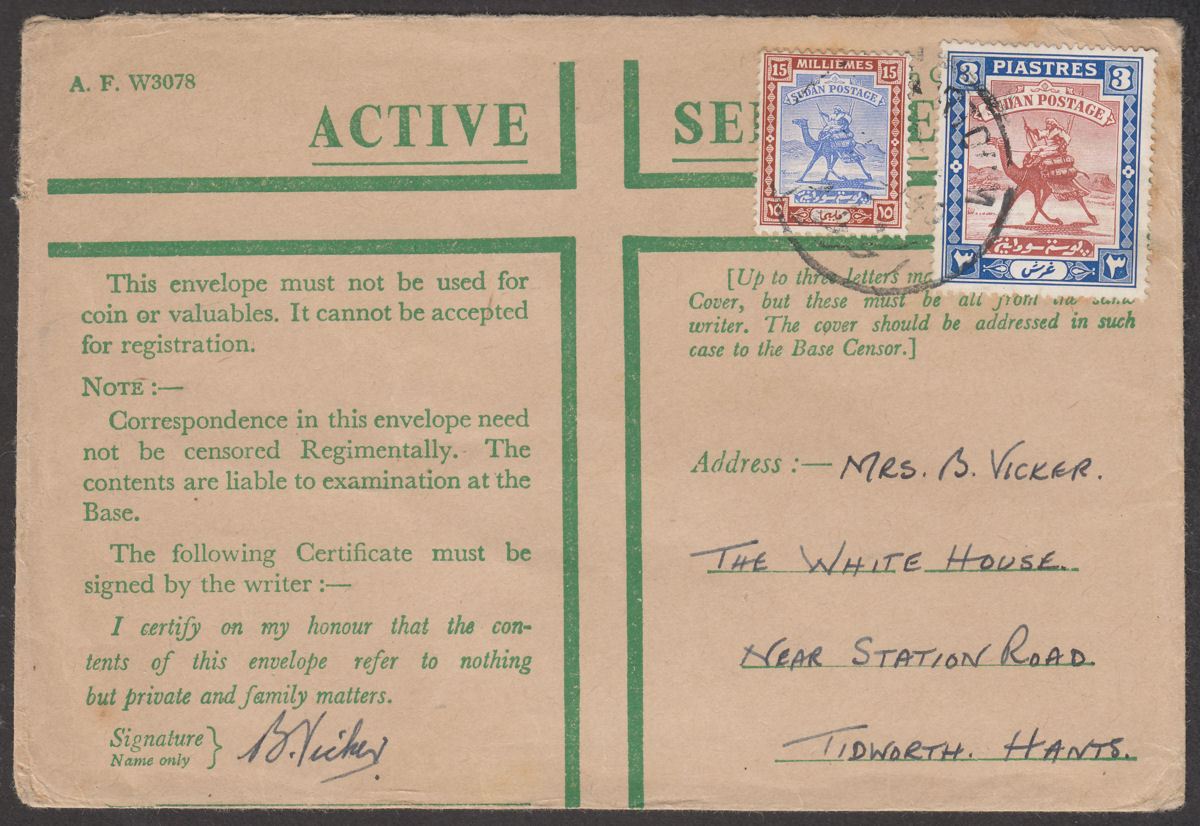 A. F. W3078
ACTIVE SE
This envelope must not be used for
coin or valuables. It cannot be accepted
for registration.
NOTE :—
Correspondence in this envelope need
not be censored Regimentally. The
contents are liable to examination at the
Base.
The following Certificate must be
signed by the writer :—
I certify on my honour that the con-
tents of this envelope refer to nothing
but private and family matters.
Signature }
Name only
B. Vicker
15 MILLIEMES 15
SUDAN POSTAGE
بوستة سودانية
١٥ مليما ١٥
3 PIASTRES 3
SUDAN POSTAGE
بوستة سودانية
٣ غرش ٣
[Up to three letters
Cover, but these must be all from the same
writer. The cover should be addressed in such
case to the Base Censor.]
Address :— MRS. B. VICKER.
THE WHITE HOUSE.
NEAR STATION ROAD.
TIDWORTH. HANTS.